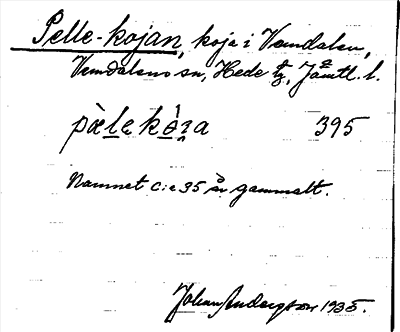 Pelle-kojan, koja i Vemdalen,
Vemdalens sn, Hede tg, Jämtl. l.
pàlekòza 395
Namnet c:e 35 år gammalt.
Johan Andersson 1935.